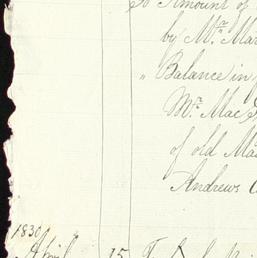 To Amount of
by Mr. Mar
" Balance in
Mr. Mac
of old Ma
Andrews
1830
April 15